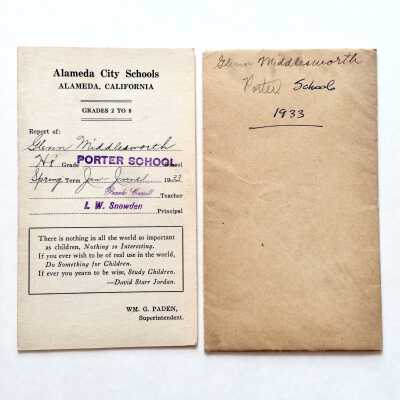 Alameda City Schools
ALAMEDA, CALIFORNIA
GRADES 2 TO 8
Report of:
Glenn Middlesworth
H8 Grade PORTER SCHOOL School
Spring Term Jan-June 1933
Teacher
L. W. Snowden
Principal
There is nothing in all the world so important
as children, Nothing so Interesting.
If you ever wish to be of real use in the world,
Do Something for Children.
If ever you yearn to be wise, Study Children.
—David Starr Jordan.
WM. G. PADEN,
Superintendent.
Glenn Middlesworth
Porter School
1933